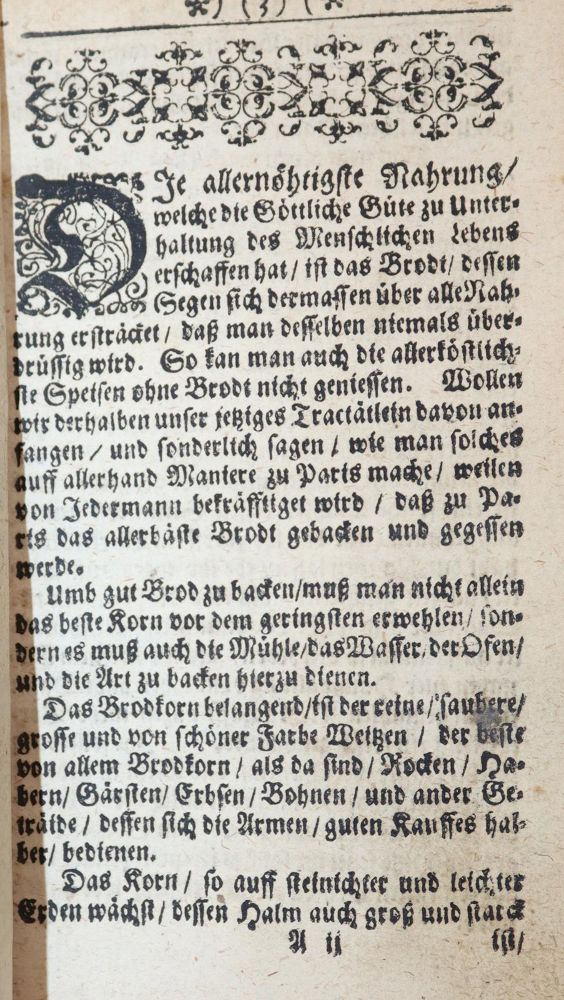 ✻) (3) (✻
DJe allernöhtigste Nahrung/
welche die Göttliche Güte zu Unter-
haltung des Menschlichen Lebens
erschaffen hat/ ist das Brodt/ dessen
Segen sich dermassen über alle Nah-
rung ersträcket/ daß man desselben niemals über-
drüssig wird. So kan man auch die allerköstlich-
ste Speisen ohne Brodt nicht geniessen. Wollen
wir derhalben unser jetziges Tractätlein davon an-
fangen/ und sonderlich sagen/ wie man solches
auff allerhand Maniere zu Paris mache/ weilen
von Jedermann bekräfftiget wird/ daß zu Pa-
ris das allerbäste Brodt gebacken und gegessen
werde.
Umb gut Brod zu backen/muß man nicht allein
das beste Korn vor dem geringsten erwehlen/ son-
dern es muß auch die Mühle/das Wasser/der Ofen/
und die Art zu backen hierzu dienen.
Das Brodkorn belangend/ist der reine/saubere/
grosse und von schöner Farbe Weitzen/ der beste
von allem Brodkorn/ als da sind/ Rocken/ Ha-
bern/ Gärsten/ Erbsen/ Bohnen/ und ander Ge-
träide/ dessen sich die Armen/ guten Kauffes hal-
ber/ bedienen.
Das Korn/ so auff steinichter und leichter
Erden wächst/ dessen Halm auch groß und starck
A ij ist/